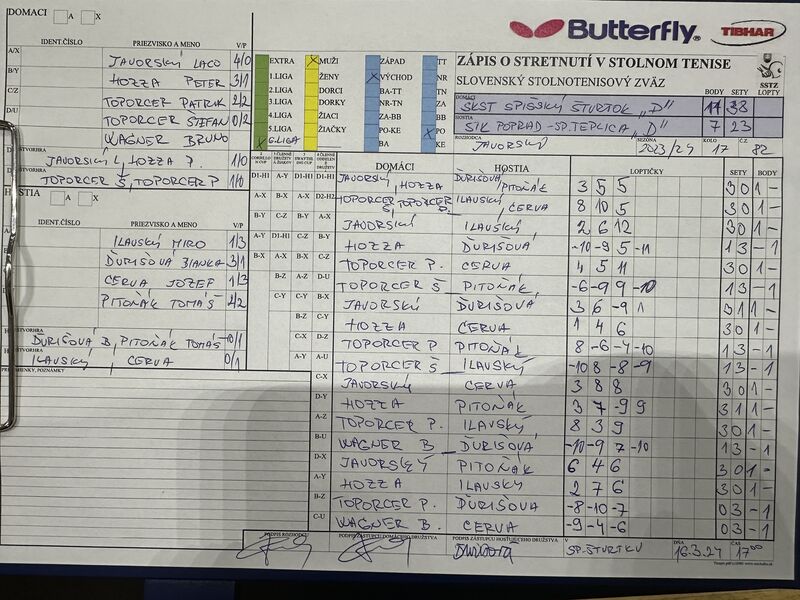 DOMACI A X
IDENT.ČÍSLO PRIEZVISKO A MENO V/P
A/X JAVORSKÝ LACO 4/0
B/Y HOZZA PETER 3/1
C/Z TOPORCER PATRIK 2/2
D/U TOPORCER ŠTEFAN 0/2
WAGNER BRUNO
JAVORSKÝ L, HOZZA P 1/0
TOPORCER Š, TOPORCER P 1/0
HOSTIA A X
IDENT.ČÍSLO PRIEZVISKO A MENO V/P
ILAVSKÝ MIRO 1/3
ĎURIŠOVÁ BIANKA 3/1
CERVA JOZEF 1/3
PITOŇÁK TOMÁŠ 2/2
ĎURIŠOVÁ B, PITOŇÁK TOMÁŠ 0/1
ILAVSKÝ CERVA 0/1
PRIPOMIENKY, POZNÁMKY
EXTRA
1.LIGA
2.LIGA
3.LIGA
4.LIGA
5.LIGA
6.LIGA
MUŽI
ŽENY
DORCI
DORKY
ŽIACI
ŽIAČKY
ZÁPAD
VÝCHOD
BA-TT
NR-TN
ZA-BB
PO-KE
BA
TT
NR
TN
ZA
BB
PO
KE
Butterfly
TIBHAR
ZÁPIS O STRETNUTÍ V STOLNOM TENISE
SLOVENSKÝ STOLNOTENISOVÝ ZVÄZ
SSTZ
BODY SETY LOPTY
DOMÁCI SKST SPIŠSKÝ ŠTVRTOK "D" 11 38
HOSTIA STK POPRAD-SP.TEPLICA "D" 7 23
ROZHODCA JAVORSKÝ SEZÓNA 2023/24 KOLO 17 Č.Z 82
DOMÁCI HOSTIA LOPTIČKY SETY BODY
JAVORSKÝ, HOZZA ĎURIŠOVÁ PITOŇÁK 3 5 5 3 0 1 -
TOPORCER Š TOPORCER P. ILAVSKÝ, CERVA 8 10 5 3 0 1 -
JAVORSKÝ ILAVSKÝ 2 6 12 3 0 1 -
HOZZA ĎURIŠOVÁ -10 -9 5 -11 1 3 - 1
TOPORCER P. CERVA 4 5 11 3 0 1 -
TOPORCER Š PITOŇÁK -6 -9 9 -10 1 3 - 1
JAVORSKÝ ĎURIŠOVÁ 3 6 -9 1 3 1 1 -
HOZZA CERVA 1 4 6 3 0 1 -
TOPORCER P PITOŇÁK 8 -6 -4 -10 1 3 - 1
TOPORCER Š ILAVSKÝ -10 8 -8 -9 1 3 - 1
C-X JAVORSKÝ CERVA 3 8 8 3 0 1 -
D-Y HOZZA PITOŇÁK 3 7 -9 9 3 1 1 -
A-Z TOPORCER P. ILAVSKÝ 8 3 9 3 0 1 -
B-U WAGNER B ĎURIŠOVÁ -10 -9 7 -10 1 3 - 1
D-X JAVORSKÝ PITOŇÁK 6 4 6 3 0 1 -
A-Y HOZZA ILAVSKÝ 2 7 6 3 0 1 -
B-Z TOPORCER P. ĎURIŠOVÁ -8 -10 -7 0 3 - 1
C-U WAGNER B. CERVA -9 -4 -6 0 3 - 1
PODPIS ROZHODCU PODPIS ZÁSTUPCU DOMÁCEHO DRUŽSTVA PODPIS ZÁSTUPCU HOSŤUJÚCEHO DRUŽSTVA V DŇA ČAS
SP.ŠTVRTKU 16.3.24 17 00